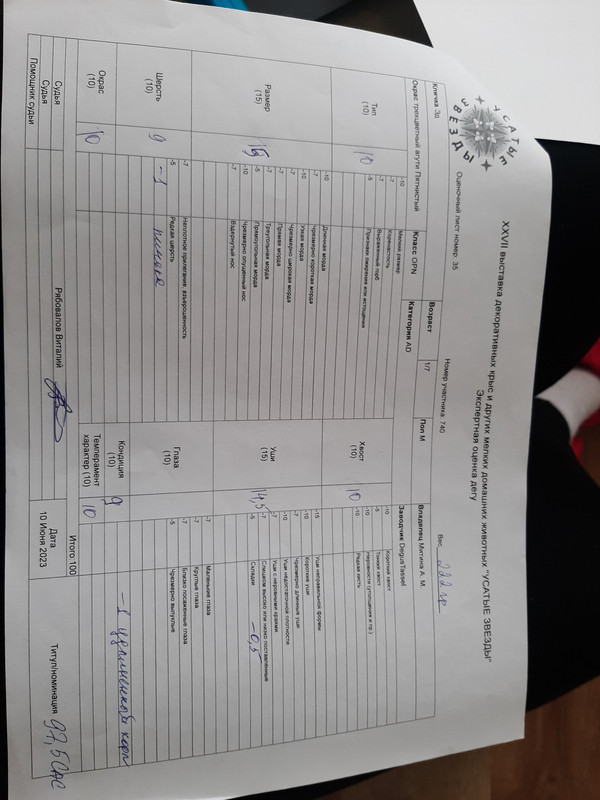 УСАТЫЕ ЗВЕЗДЫ
XXVII выставка декоративных крыс и других мелких домашних животных "УСАТЫЕ ЗВЕЗДЫ"
Экспертная оценка дегу
Оценочный лист номер: 35
Номер участника: 740
Вес 222 гр
Кличка Эд
Окрас трехцветный агути Пятнистый
Класс OPN
Категория AD
Возраст
1/7
Пол М
Владелец Митина А. М.
Заводчик DegusTassel
Тип
(10)
10
-10 Мелкий размер
-7 Коренастость
-7 Выраженный горб
-5 Признаки ожирения или истощения
Размер
(15)
15
-10 Длинная морда
-7 Чрезмерно короткая морда
-10 Узкая морда
-7 Чрезмерно широкая морда
-7 Прямая морда
-7 Треугольная морда
-5 Прямоугольная морда
-10 Чрезмерно опущенный нос
-7 Вздернутый нос
Шерсть
(10)
9
-7 Неплотное прилегание, взъерошенность
-5 Редкая шерсть
-1 линька
Окрас
(10)
10
Хвост
(10)
10
-10 Короткий хвост
-5 Тонкий хвост
-10 Неровности (утолщения и пр.)
-10 Редкая кисть
Уши
(15)
14,5
-15 Уши неправильной формы
-10 Короткие уши
-7 Чрезмерно длинные уши
-10 Уши недостаточной плотности
-7 Уши с неровными краями
-7 Слишком высоко или низко поставленные
-5 Складки -0,5
Глаза
(10)
-7 Маленькие глаза
-7 Круглые глаза
-7 Близко посаженные глаза
-5 Чрезмерно выпуклые
Кондиция
(10)
9
-1
Темперамент
характер (10)
10
Итого:100
Судья
Судья
Помощник судьи
Рябовалов Виталий
Дата
10 Июня 2023
Титул/номинация
97,5 CAC